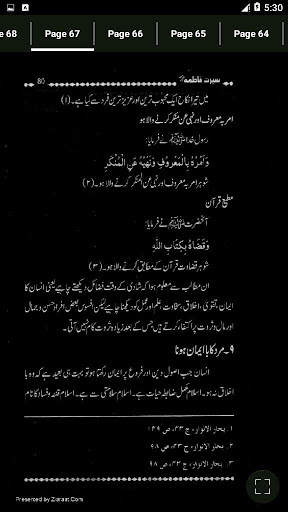 5:30
e 68 Page 67 Page 66 Page 65 Page 64
سیرت فاطمہؑ 80
میں تیرا نکاح ایک محبوب ترین اور عزیز ترین فرد سے کیا ہے۔ (۱)
امر بہ معروف اور نہی عن منکر کرنے والا ہو
رسول خدا ﷺ نے فرمایا:
وَآمِرُهُ بِالْمَعْرُوفِ وَنَهْيُهُ عَنِ الْمُنْكَرِ
شوہر امر بہ معروف اور نہی عن المنکر کرنے والا ہو۔ (۲)
مطیع قرآن
آنحضرت ﷺ نے فرمایا:
وَقَضَاهُ بِكِتَابِ اللّٰهِ
شوہر قضاوت قرآن کے مطابق کرنے والا ہو۔ (۳)
ان مطالب سے معلوم ہوا کہ شادی کے وقت فضائل دیکھنے چاہیے یعنی انسان کا
ایمان، تقویٰ، اخلاق، سخاوت، علم اور عمل کو دیکھنا چاہیے لیکن افسوس بعض افراد حسن و جمال
اور مال و ثروت پر اکتفاء کرتے ہیں جس کے بعد زیادہ ثروت کام نہیں آتی۔
۹۔ مرد کا با ایمان ہونا
انسان جب اصول دین اور فروع پر ایمان رکھتا ہو تو بہت ہی بعید ہے کہ وہ با
اخلاق نہ ہو۔ اسلام مکمل ضابطہ حیات ہے۔ اسلام سلامتی سے ہے۔ اسلام فتنہ و فساد کا نام
۱۔ بحار الانوار، ج ۴۳، ص ۱۴۹
۲۔ بحار الانوار، ج ۴۳، ص ۹۸
۳۔ بحار الانوار، ج ۴۳، ص ۹۸
Presented by Ziaraat.Com